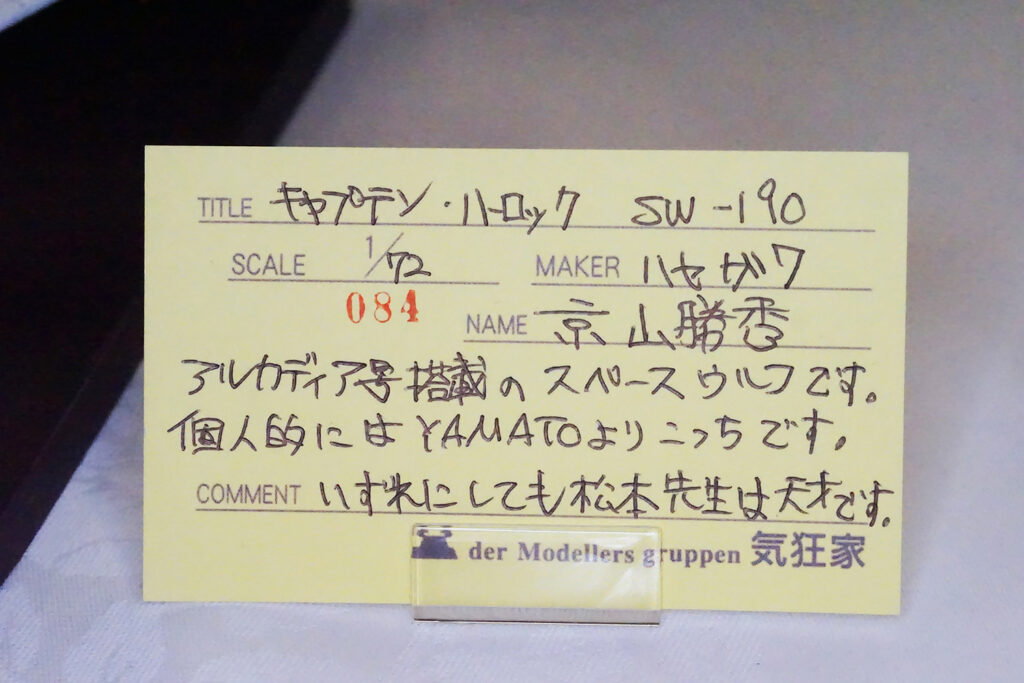 TITLE キャプテン・ハーロック SW-190
SCALE 1/72 MAKER ハセガワ
084
NAME 京山勝香
アルカディア号搭載の スペースウルフです。
個人的にはYAMATOよりこっちです。
COMMENT いずれにしても松本先生は天才です。
der Modellers gruppen 気狂家